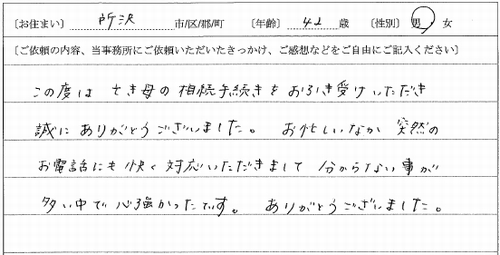 〔お住まい〕 所沢 市/区/郡/町 〔年齢〕 42 歳 〔性別〕 男・女
〔ご依頼の内容、当事務所にご依頼いただいたきっかけ、ご感想などをご自由にご記入ください〕
この度は 亡き母の 相続手続きを お引き受けいただき
誠に ありがとうございました。 お忙しいなか 突然の
お電話にも 快く 対応いただきまして 分からない事が
多い中で 心強かったです。 ありがとうございました。